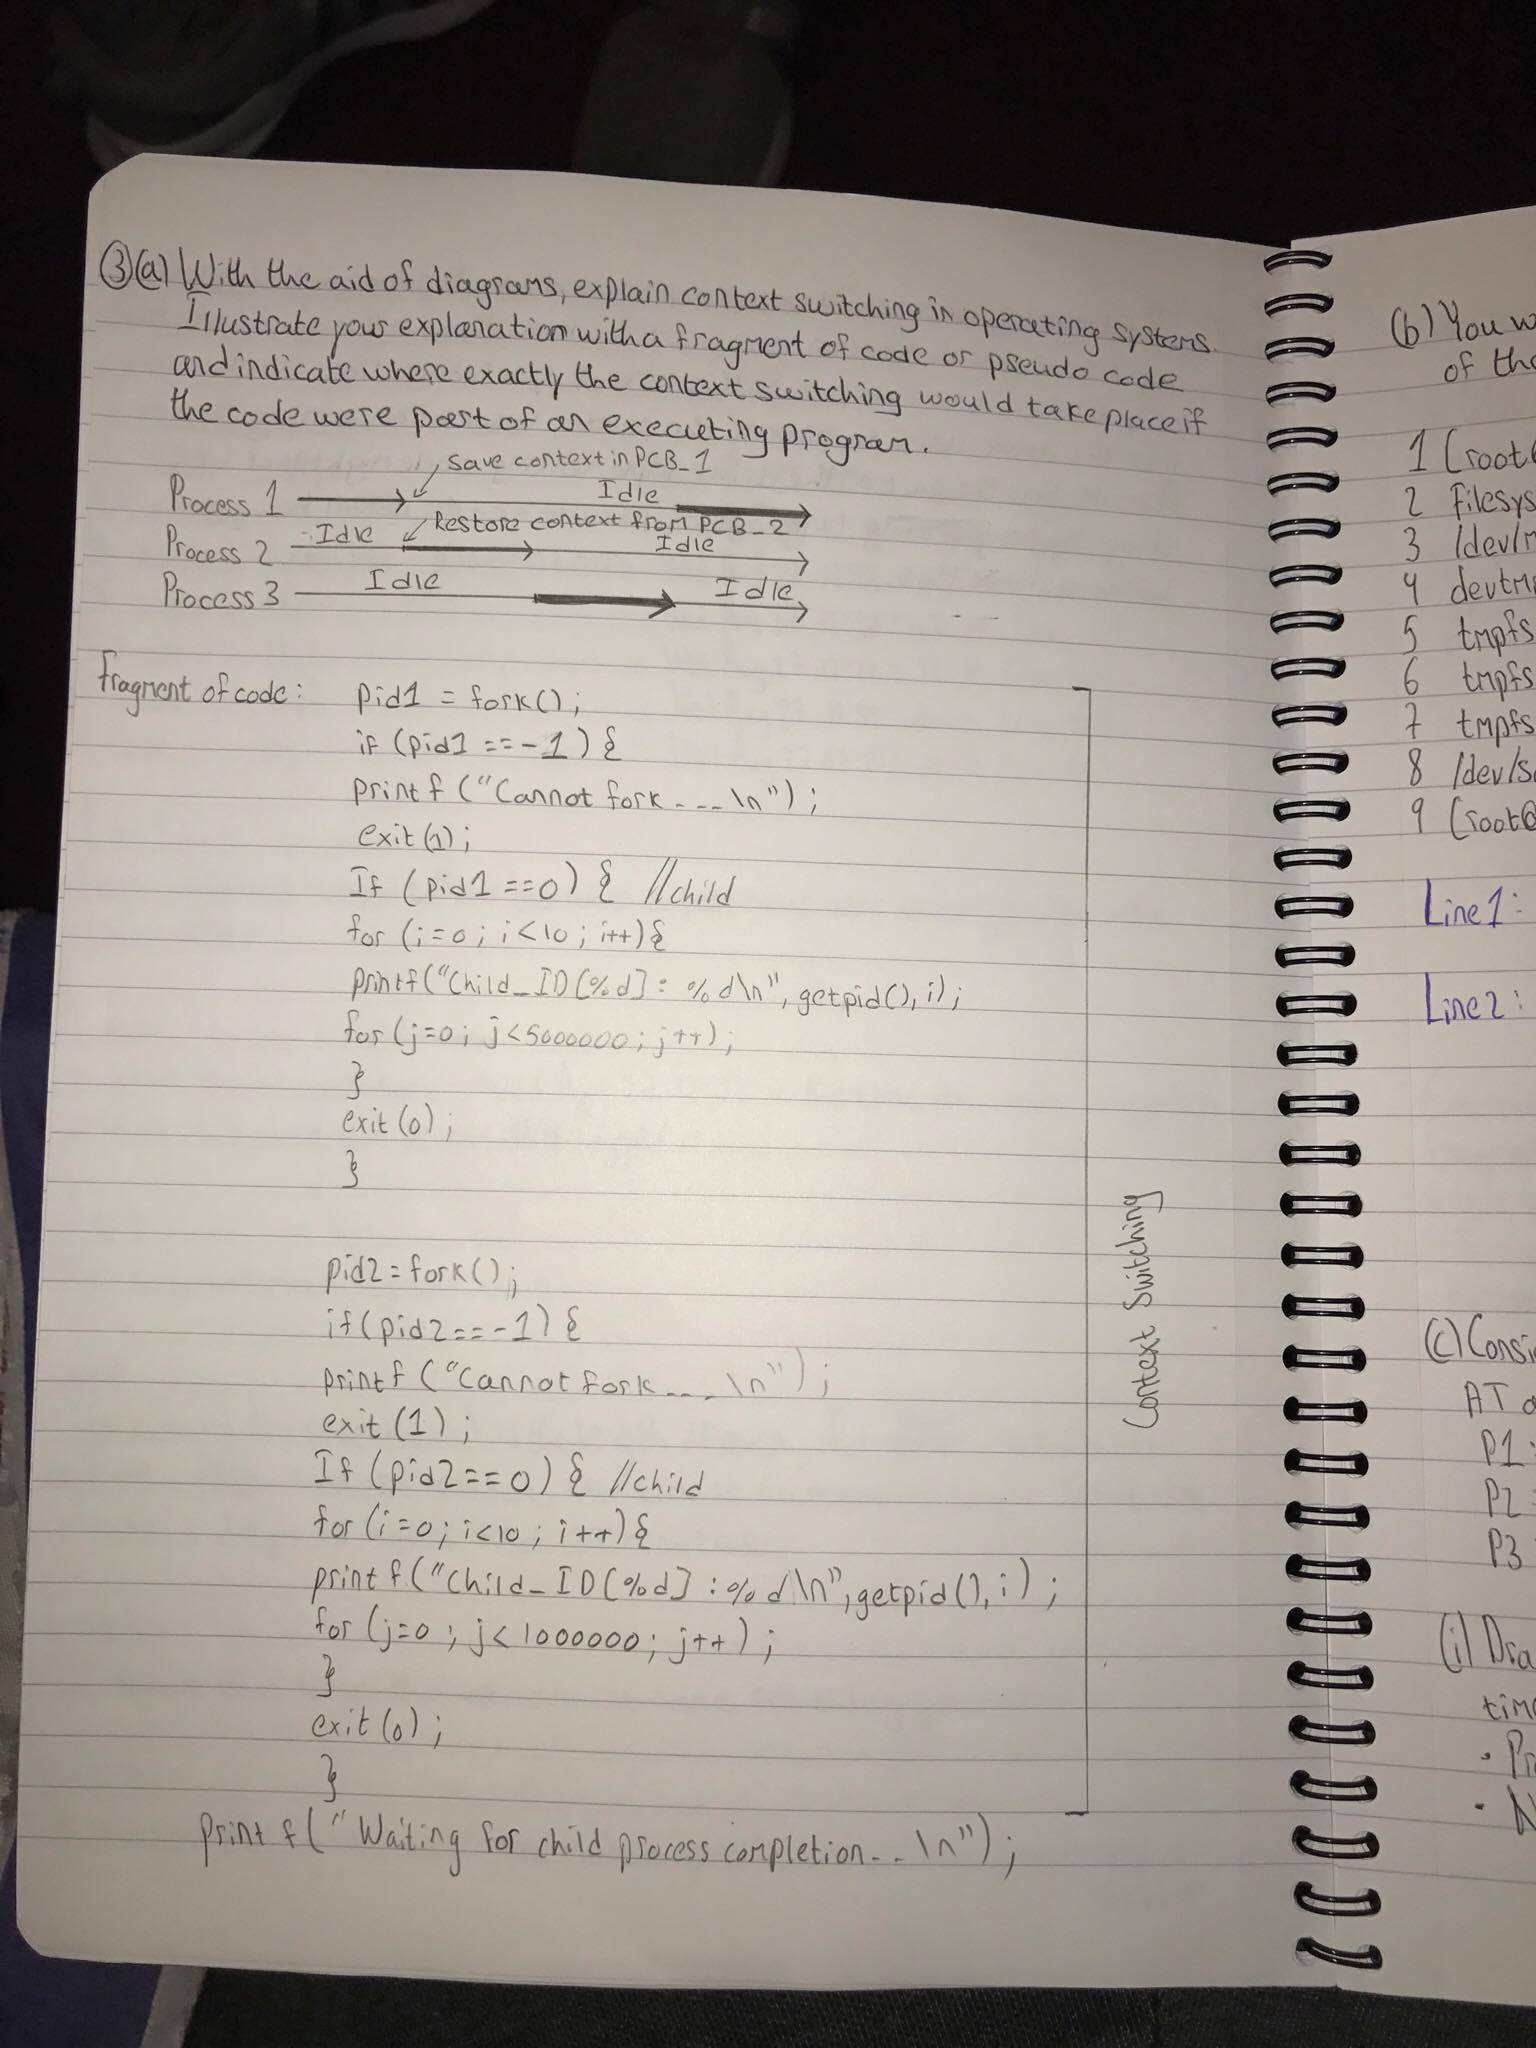 ③(a) With the aid of diagrams, explain context switching in operating systems.
Illustrate your explanation with a fragment of code or pseudo code
and indicate where exactly the context switching would take place if
the code were part of an executing program.
save context in PCB_1
Process 1 Idle
Restore context from PCB_2
Process 2 Idle Idle
Process 3 Idle Idle
Fragment of code: pid1 = fork();
if (pid1 == -1) {
printf ("Cannot fork... \n");
exit(1);
If (pid1 == 0) { //child
for (i=0; i<10; i++){
printf("Child_ID[%d]: %d\n", getpid(), i);
for (j=0; j<5000000; j++);
}
exit(0);
}
pid2 = fork();
if(pid2 == -1) {
printf ("Cannot fork... \n");
exit (1);
If (pid2 == 0) { //child
for (i=0; i<10; i++){
printf("Child_ID[%d]: %d\n", getpid(), i);
for (j=0; j<1000000; j++);
}
exit(0);
}
Context Switching
printf("Waiting for child process completion.. \n");
(b) You w
of the
1 [root@
2 Filesys
3 /dev/m
4 devtm
5 tmpfs
6 tmpfs
7 tmpfs
8 /dev/s
9 [root@
Line 1:
Line 2:
(c) Consi
AT
P1:
P2
P3
(i) Dra
tim
· Pr
· N